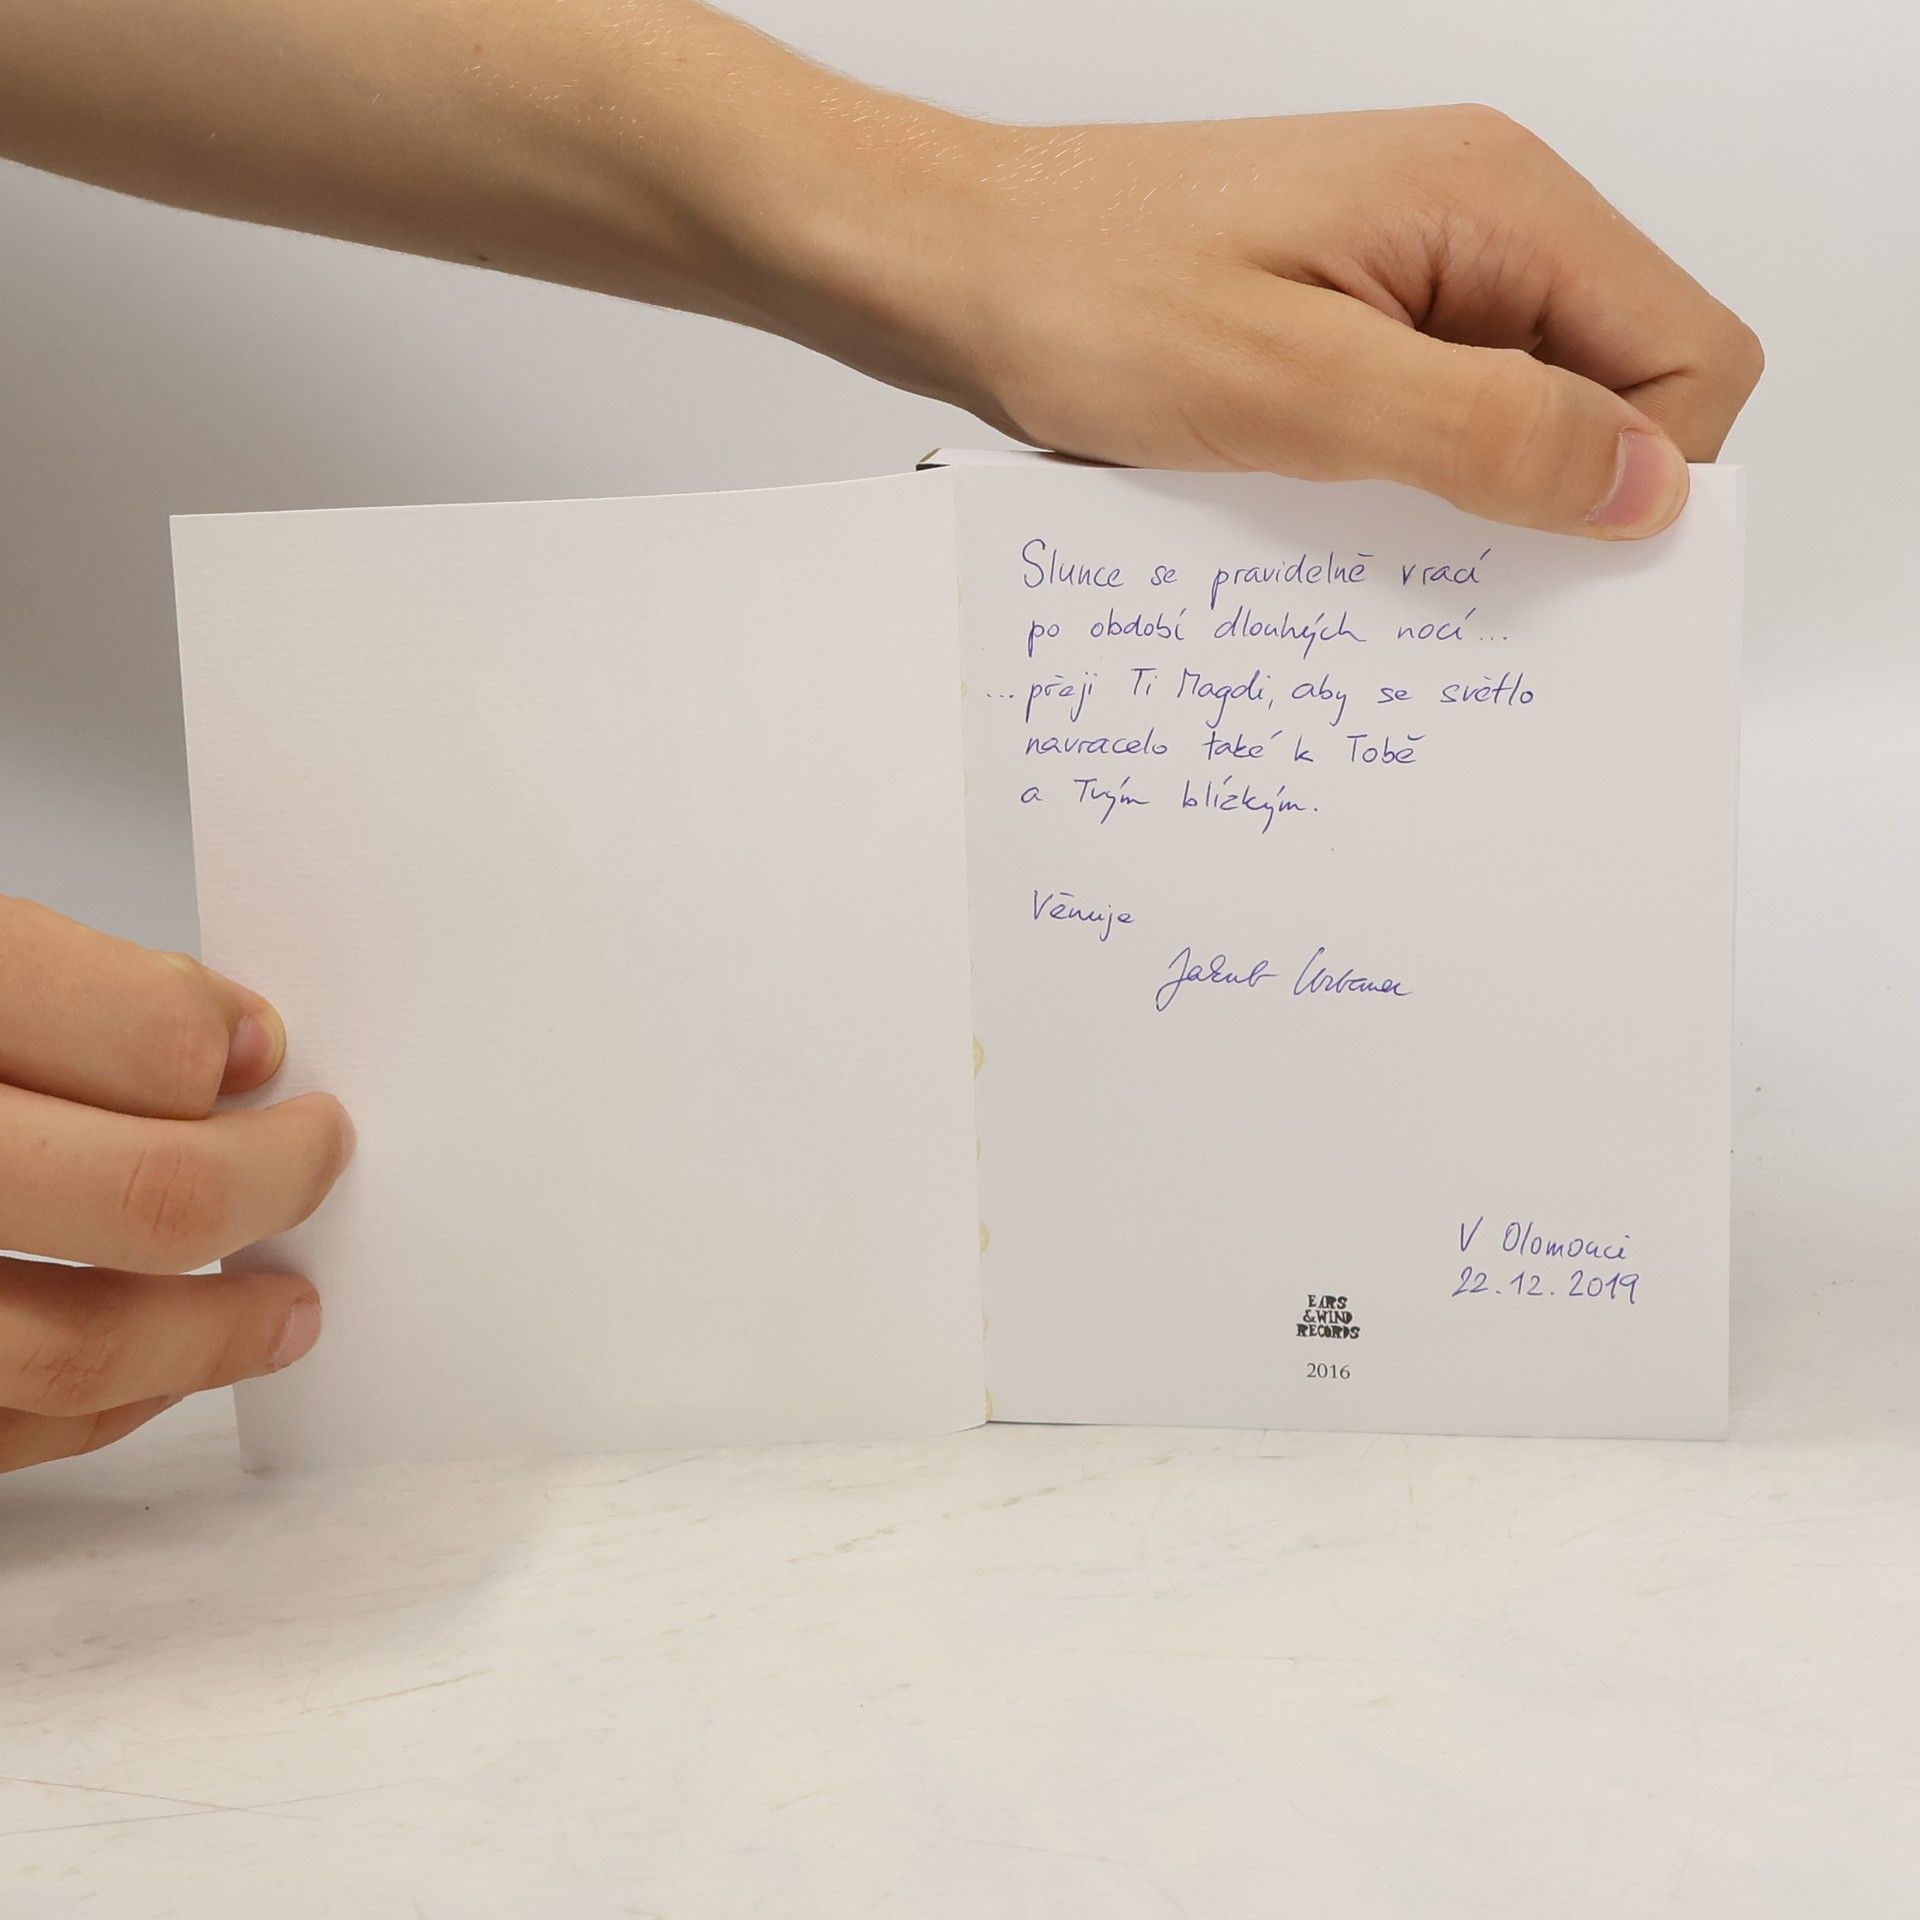 Slunce se pravidelně vrací
po období dlouhých nocí...
...přeji Ti Magdi, aby se světlo
navracelo také k Tobě
a Tvým blízkým.
Věnuje
Jakub Urbanec
V Olomouci
22.12.2019
EARS
&WIND
RECORDS
2016